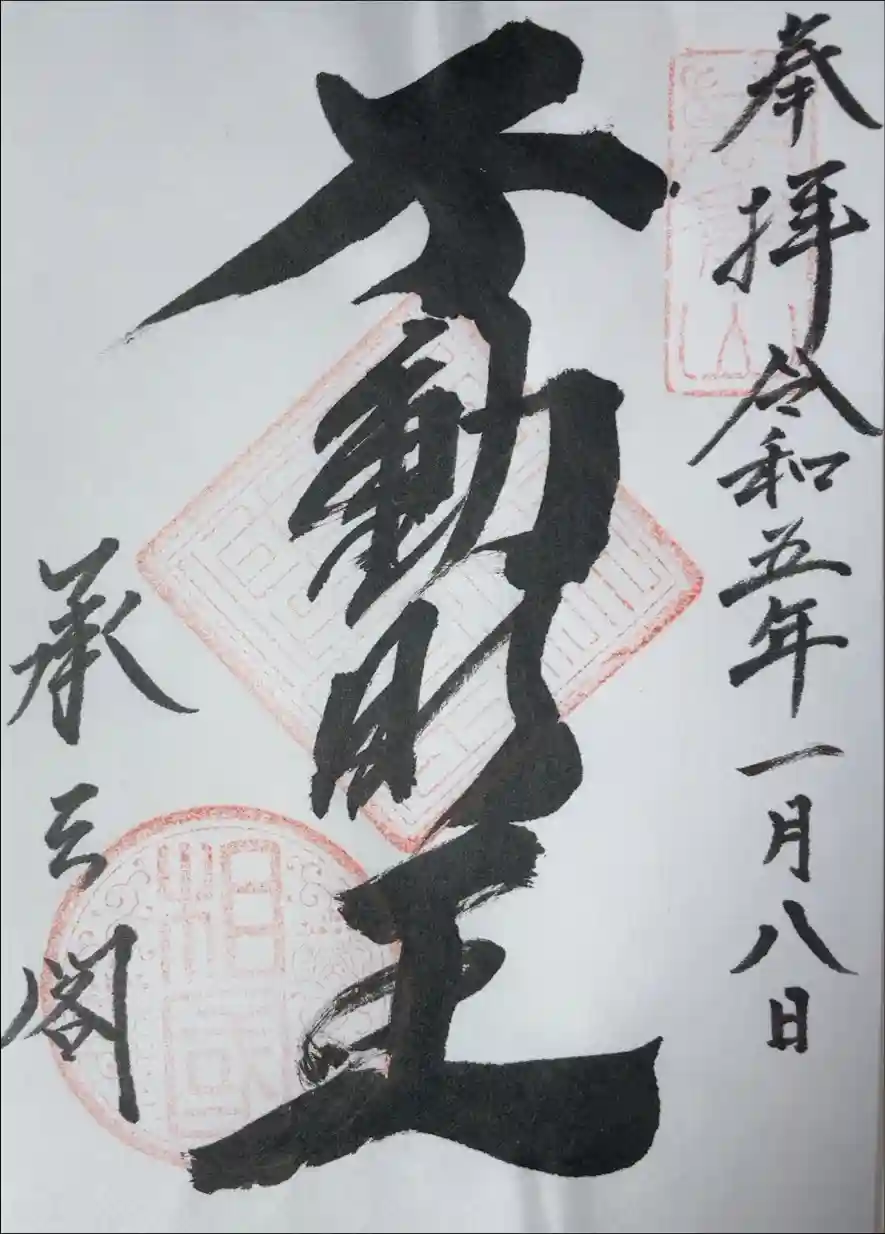 奉拝 令和五年一月八日
不動明王
承天閣
相国